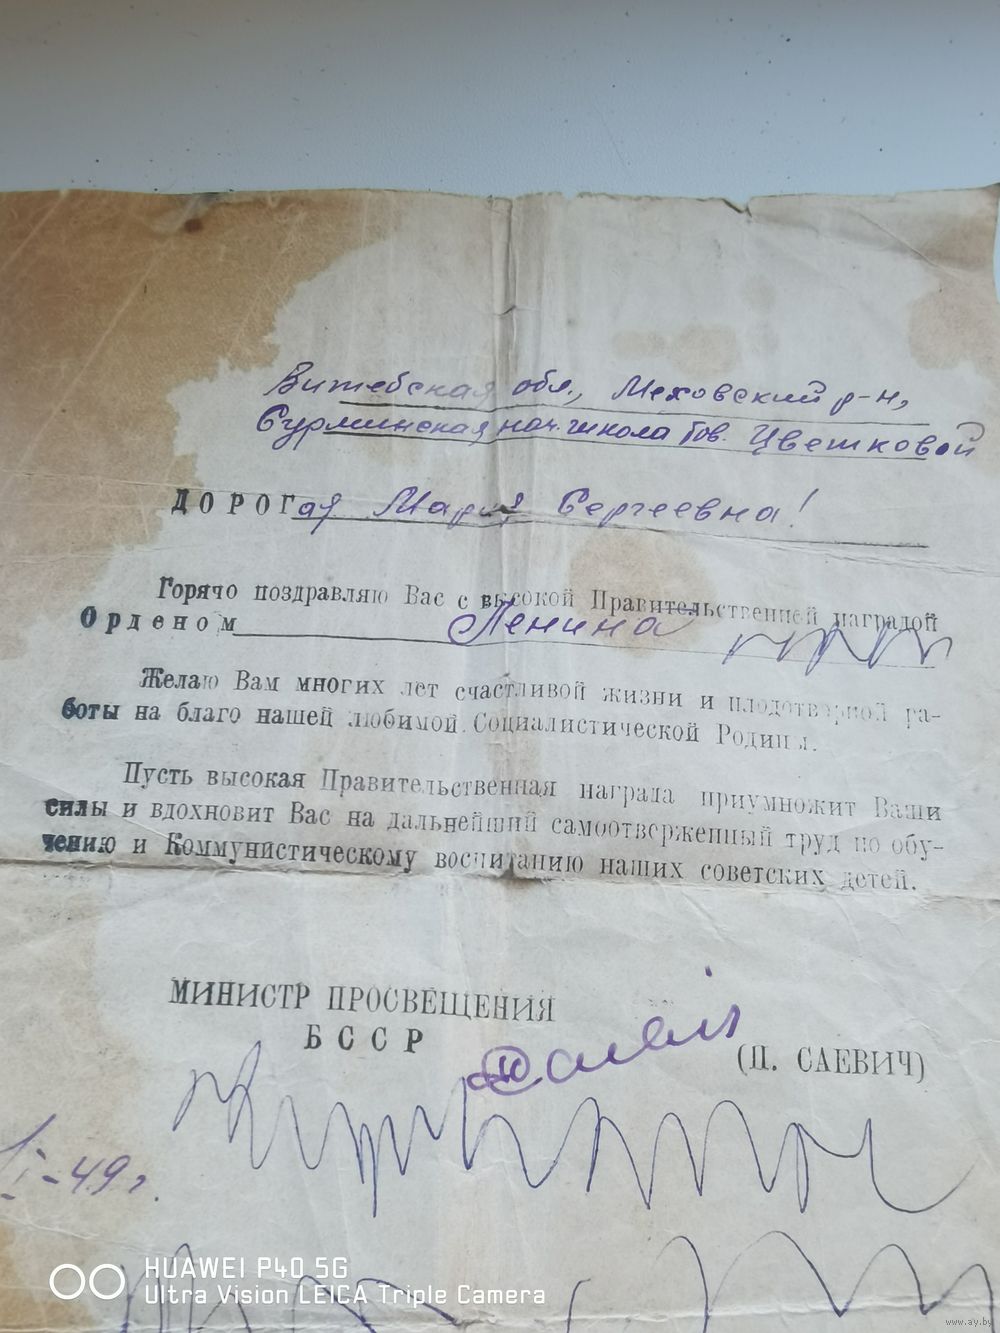 Витебская обл., Меховский р-н,
Сурминская нач. школа тов. Цветковой
ДОРОГая Мария Сергеевна!
Горячо поздравляю Вас с высокой Правительственной наградой
Орденом Ленина
Желаю Вам многих лет счастливой жизни и плодотворной ра-
боты на благо нашей любимой Социалистической Родины.
Пусть высокая Правительственная награда приумножит Ваши
силы и вдохновит Вас на дальнейший самоотверженный труд по обу-
чению и Коммунистическому воспитанию наших советских детей.
МИНИСТР ПРОСВЕЩЕНИЯ
БССР
(П. САЕВИЧ)
-49 г.
HUAWEI P40 5G
Ultra Vision LEICA Triple Camera
www.ay.by